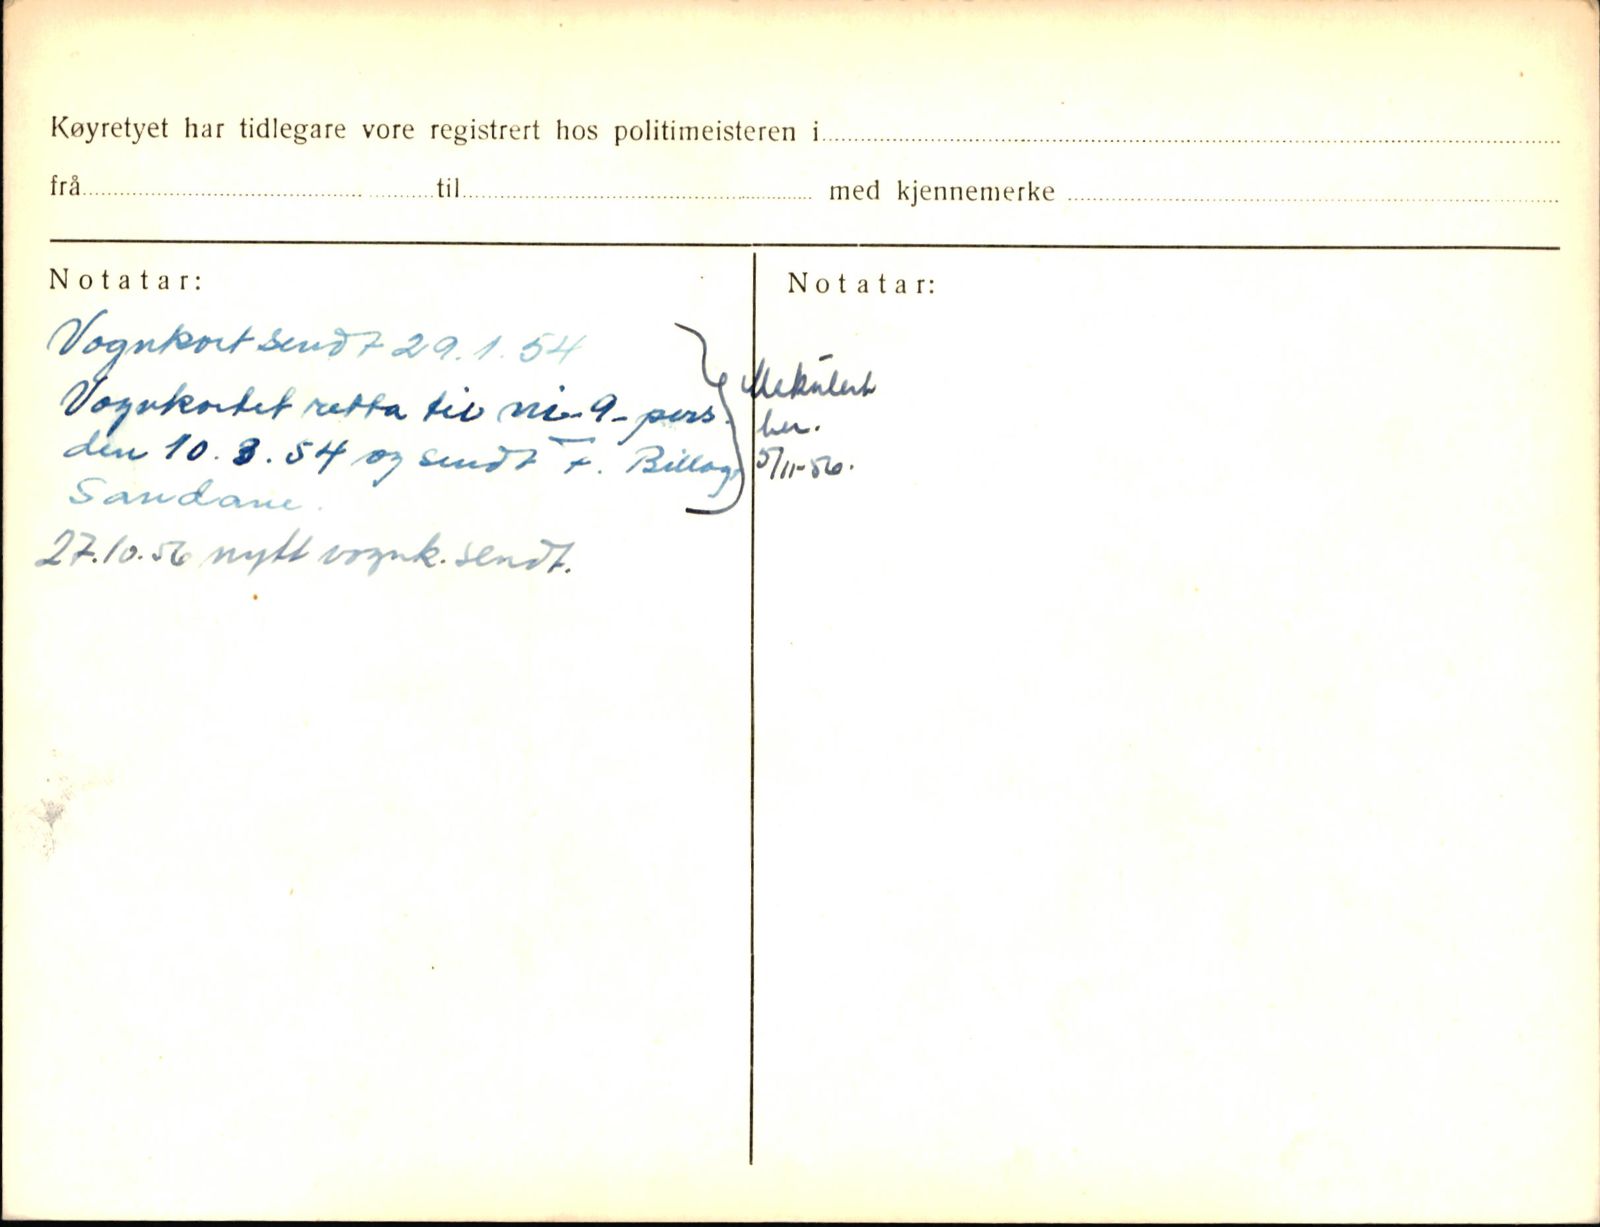 Køyretyet har tidlegare vore registrert hos politimeisteren i
frå til med kjennemerke
Notatar:
Vognkort sendt 29.1.54
Vognkortet retta til ni -9- pers.
den 10.3.54 og sendt F. Billag,
Sandane.
27.10.56 nytt vognk. sendt.
Notatar:
Makulert
her.
5/11-56.